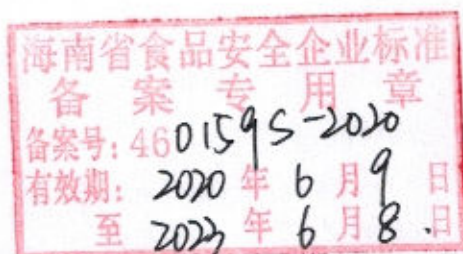 海南省食品安全企业标准
备案专用章
备案号：460159S-2020
有效期：2020年6月9日
至2023年6月8日